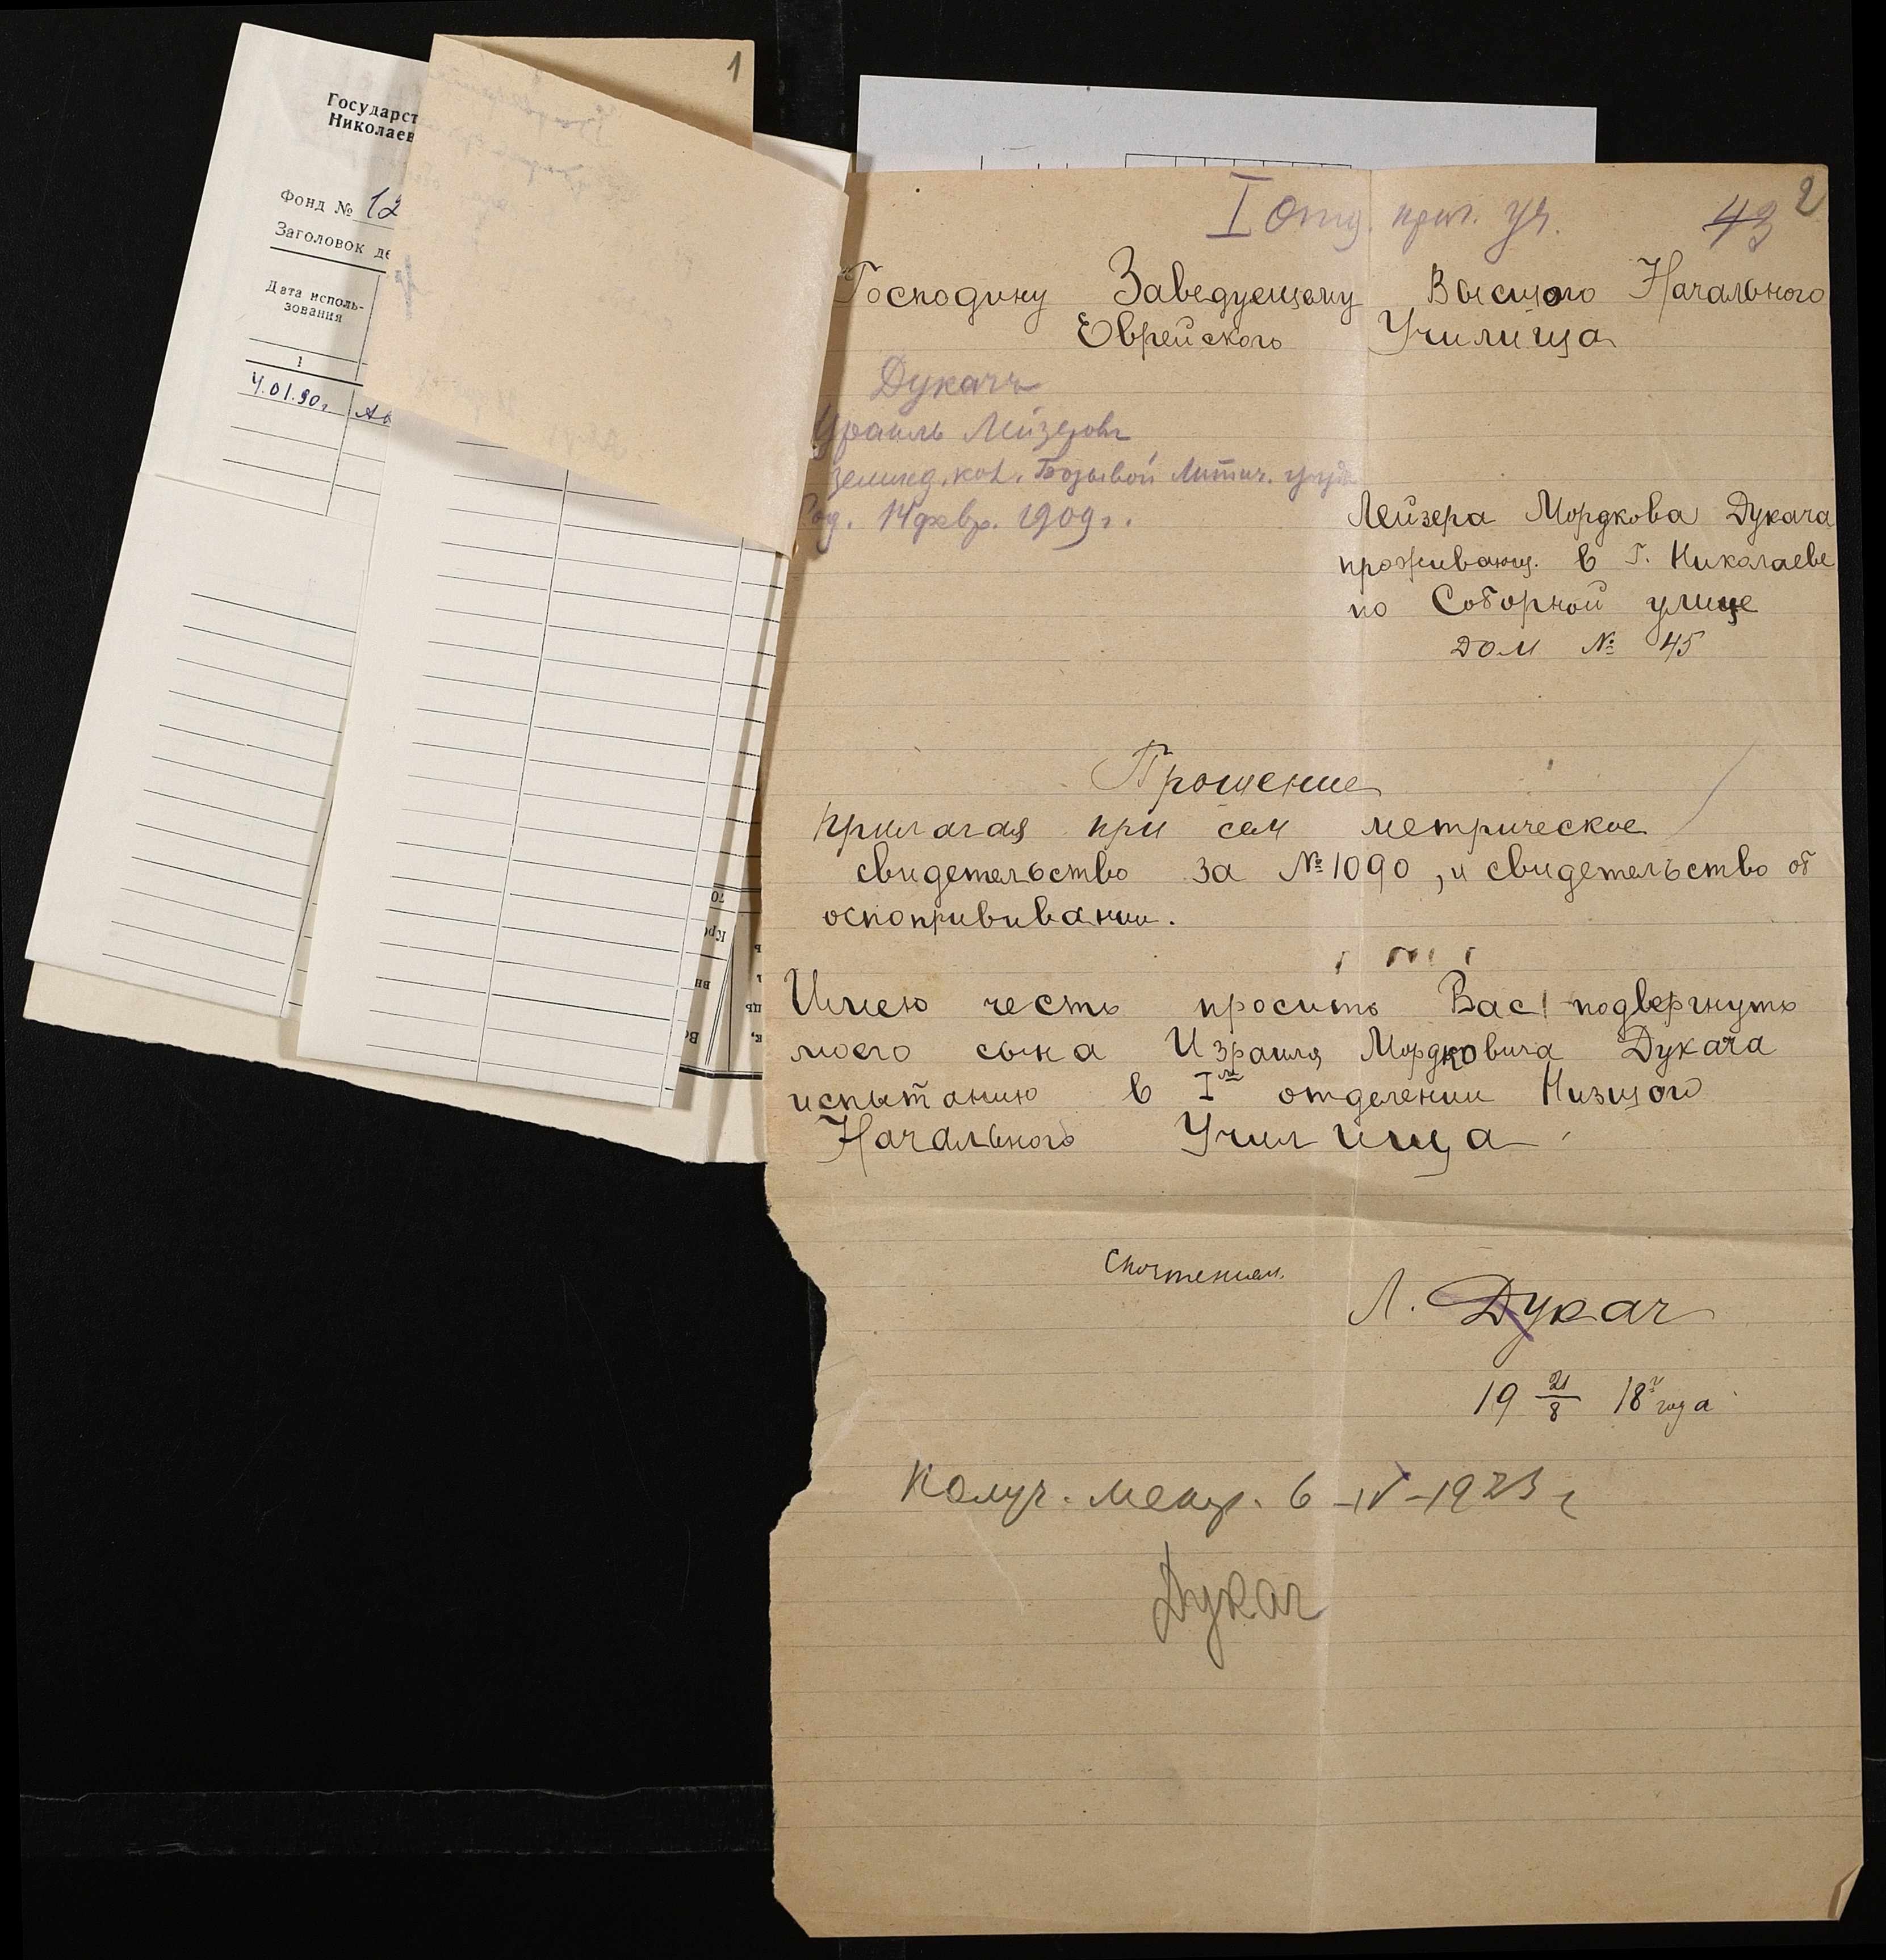 Государст
Николаев
Фонд № 12
Заголовок де
Дата исполь-
зования
1
4.01.90г
1
2
43
I отд. приг. уч.
Господину Заведующему Высшого Начального
Еврейского Училища
Дукачъ
Израиль Лейзеров
землед. кол. Бобровый
Род. 14 февр. 1909 г.
Лейзера Мордкова Дукача
проживающ. в Г. Николаеве
по Соборной улице
дом № 45
Прошение
прилагая при сем метрическое
свидетельство за № 1090, и свидетельство об
оспопрививании.
Имею честь просить Вас подвергнуть
моего сына Израиля Мордковича Дукача
испытанию в I м отделении Низшого
Начального Училища
Спочтением.
Л. Дукач
19 21/8 18 г года
Получ. метр. 6-IV-1923 г
Дукач